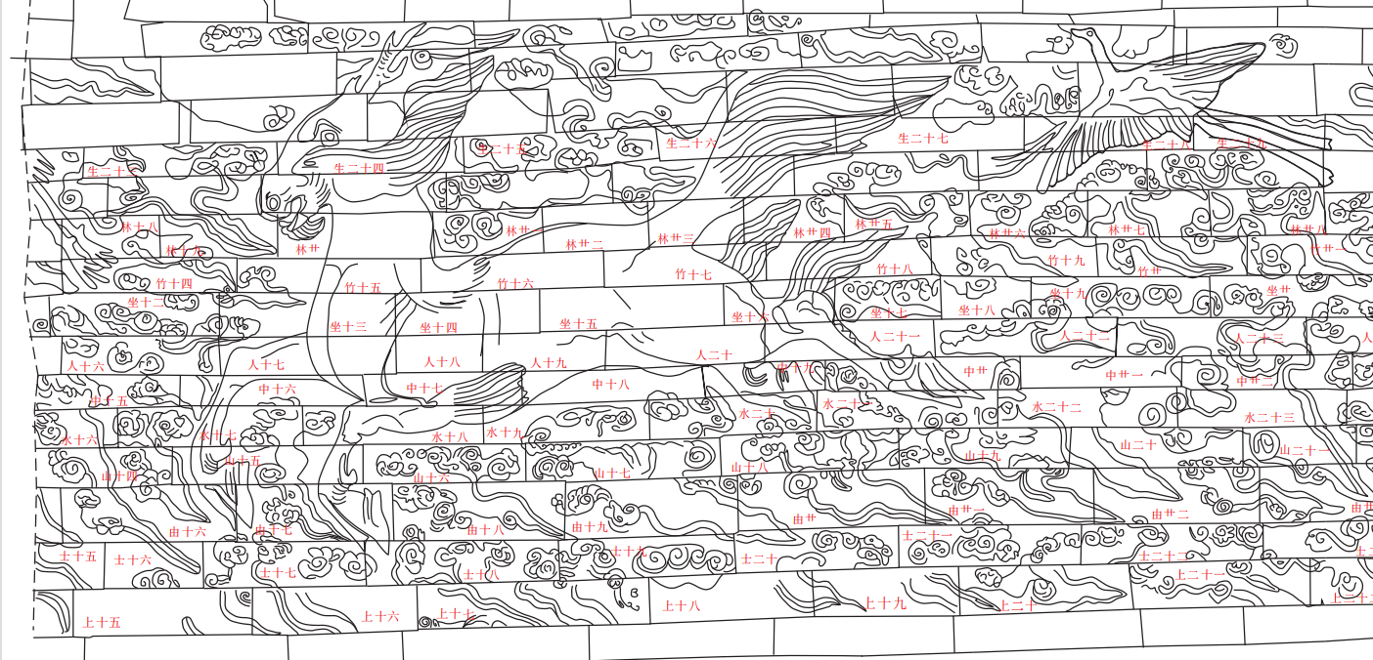 生二十四 生二十五 生二十六 生二十七 生二十八 生二十九
林十八 林十九 林廿 林廿一 林廿二 林廿三 林廿四 林廿五 林廿六 林廿七 林廿八
竹十四 竹十五 竹十六 竹十七 竹十八 竹十九 竹廿 竹廿一
坐十二 坐十三 坐十四 坐十五 坐十六 坐十七 坐十八 坐十九 坐廿
人十六 人十七 人十八 人十九 人二十 人二十一 人二十二 人二十三
中十五 中十六 中十七 中十八 中十九 中廿 中廿一 中廿二
水十六 水十七 水十八 水十九 水二十 水二十一 水二十二 水二十三
山十四 山十五 山十六 山十七 山十八 山十九 山二十 山二十一
由十六 由十七 由十八 由十九 由廿 由廿一 由廿二
士十五 士十六 士十七 士十八 士十九 士二十 士二十一 士二十二
上十五 上十六 上十七 上十八 上十九 上二十 上二十一